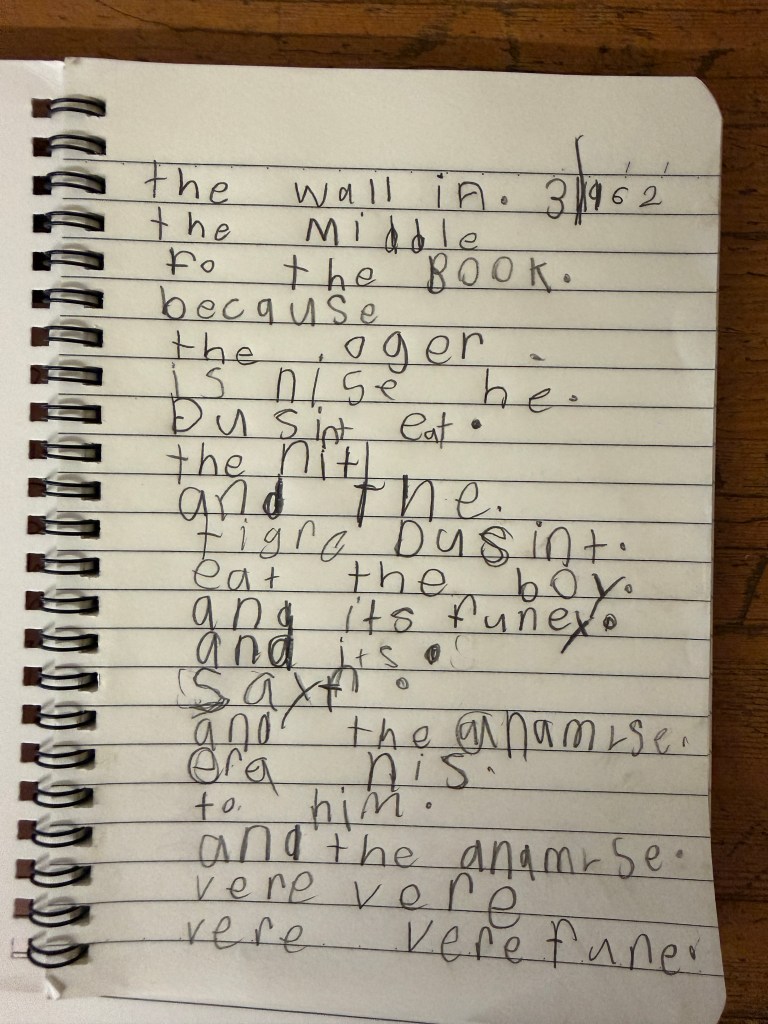 the wall in. 31962
the Middle
Fo the BOOK.
because
the .oger .
is nise he.
Dusint eat.
the nit
and the.
tigre Dusint.
eat the boy.
and its funey.
and its.
and the anamrse.
era nis.
to. him.
and the anamrse.
vere vere
vere vere fune.